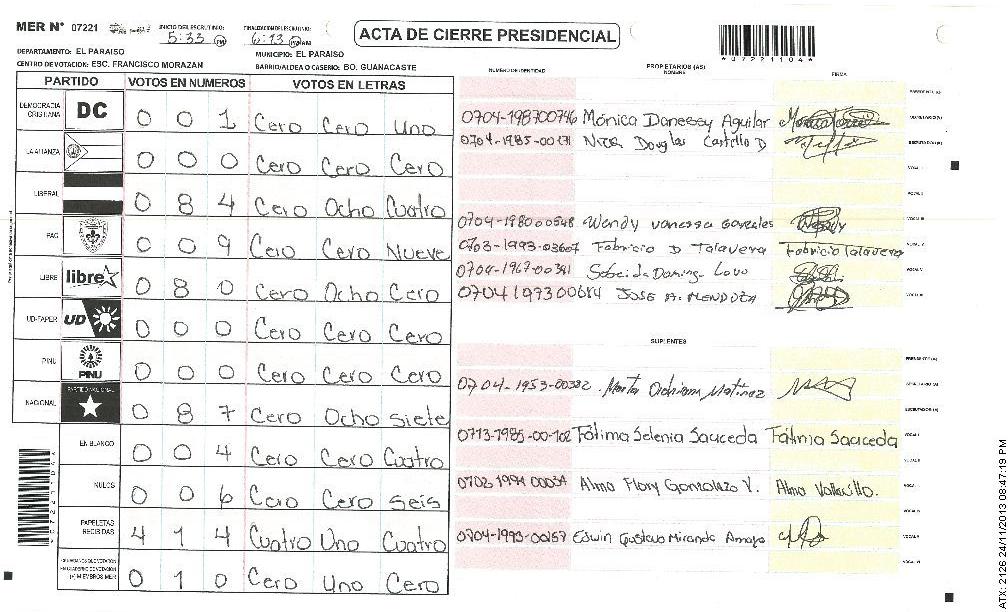 MER N° 07221 INICIO DEL ESCRUTINIO: 5:33 PM FINALIZACION DEL ESCRUTINIO: 6:13 PM
ACTA DE CIERRE PRESIDENCIAL
*07221104*
DEPARTAMENTO: EL PARAISO MUNICIPIO: EL PARAISO
CENTRO DE VOTACION: ESC. FRANCISCO MORAZAN BARRIO/ALDEA O CASERIO: BO. GUANACASTE
PARTIDO VOTOS EN NUMEROS VOTOS EN LETRAS
DEMOCRACIA CRISTIANA DC 0 0 1 Cero Cero Uno
LA ALIANZA 0 0 0 Cero Cero Cero
LIBERAL 0 8 4 Cero Ocho Cuatro
PAC 0 0 9 Cero Cero Nueve
LIBRE libre 0 8 0 Cero Ocho Cero
UD-FAPER UD 0 0 0 Cero Cero Cero
PINU PINU 0 0 0 Cero Cero Cero
NACIONAL PARTIDO NACIONAL 0 8 7 Cero Ocho Siete
EN BLANCO 0 0 4 Cero Cero Cuatro
NULOS 0 0 6 Cero Cero Seis
PAPELETAS RECIBIDAS 4 1 4 Cuatro Uno Cuatro
(+) MIEMBROS MER 0 1 0 Cero Uno Cero
NUMERO DE IDENTIDAD PROPIETARIOS (AS) NOMBRE FIRMA
0704-198700746 Mónica Danessy Aguilar
0704-1985-00131 Douglas Castillo D
0704-198000548 Wendy Vanessa Gonzales
0703-1993-03607 Fabricio D Talavera Fabricio Talavera
0704-1967-00391 Lovo
0704197300684 JOSE A. MENDOZA
SUPLENTES
0704-1953-00382 Martinez
0713-1985-00-102 Fátima Selenia Sauceda Fátima Sauceda
Alma Flory V. Alma
0704-1993-00257 Edwin Gustavo Miranda Amaya
*07221104*
ATX: 2126 24/11/2013 08:47:19 PM